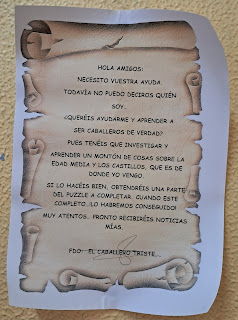 HOLA AMIGOS:
NECESITO VUESTRA AYUDA.
TODAVÍA NO PUEDO DECIROS QUIÉN
SOY.
¿QUERÉIS AYUDARME Y APRENDER A
SER CABALLEROS DE VERDAD?
PUES TENÉIS QUE INVESTIGAR Y
APRENDER UN MONTÓN DE COSAS SOBRE LA
EDAD MEDIA Y LOS CASTILLOS, QUE ES DE
DONDE YO VENGO.
SI LO HACÉIS BIEN, OBTENDRÉIS UNA PARTE
DEL PUZZLE A COMPLETAR. CUANDO ESTE
COMPLETO ¡LO HABREMOS CONSEGUIDO!
MUY ATENTOS. PRONTO RECIBIRÉIS NOTICIAS
MÍAS.
FDO: EL CABALLERO TRISTE...